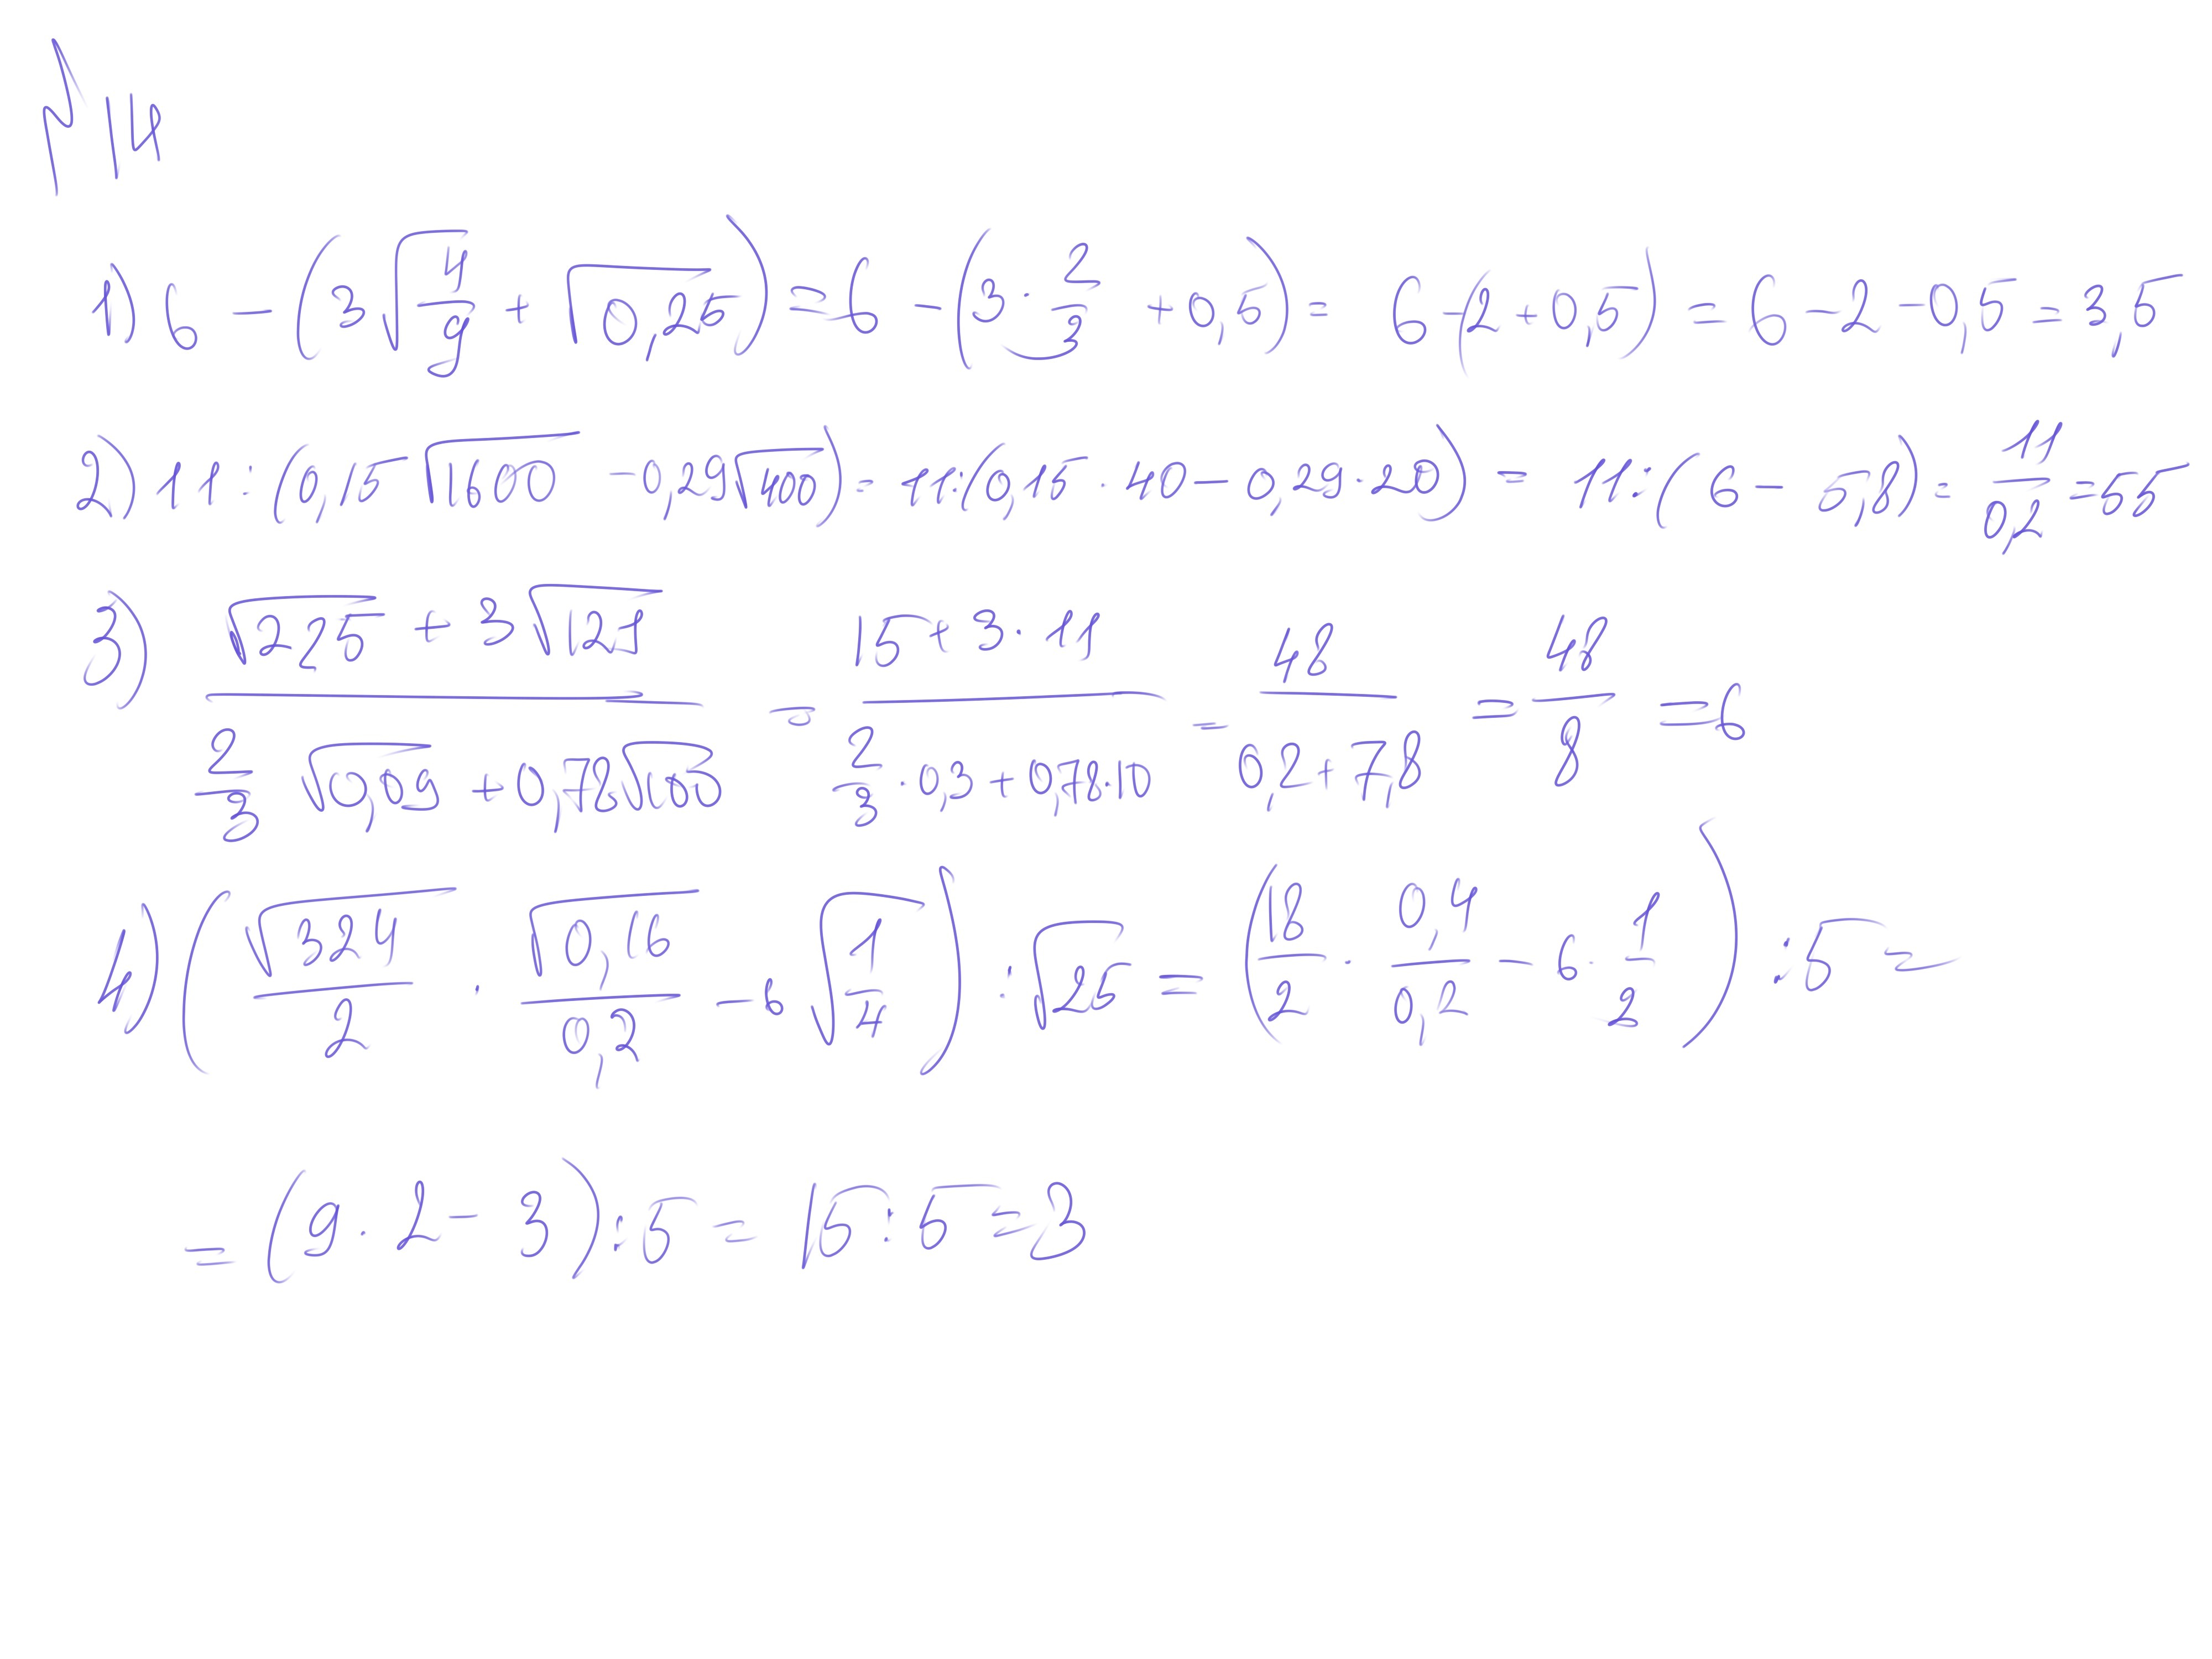 №114
1) 6 - (3√(4/9) + √0,25) = 6 - (3 · 2/3 + 0,5) = 6 - (2 + 0,5) = 6 - 2 - 0,5 = 3,5
2) 11 : (0,15√1600 - 0,29√400) = 11 : (0,15 · 40 - 0,29 · 20) = 11 : (6 - 5,8) = 11/0,2 = 55
3) (√225 + 3√121)/(2/3 √0,09 + 0,78√100) = (15 + 3 · 11)/(2/3 · 0,3 + 0,78 · 10) = 48/(0,2 + 7,8) = 48/8 = 6
4) (√324/2 · √0,16/0,2 - 6√(1/4)) : √25 = (18/2 · 0,4/0,2 - 6 · 1/2) : 5 =
= (9 · 2 - 3) : 5 = 15 : 5 = 3